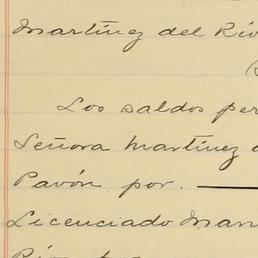 Martínez del Río
Los saldos per
Señora Martínez d
Pavón por.
Licenciado Man
Río por